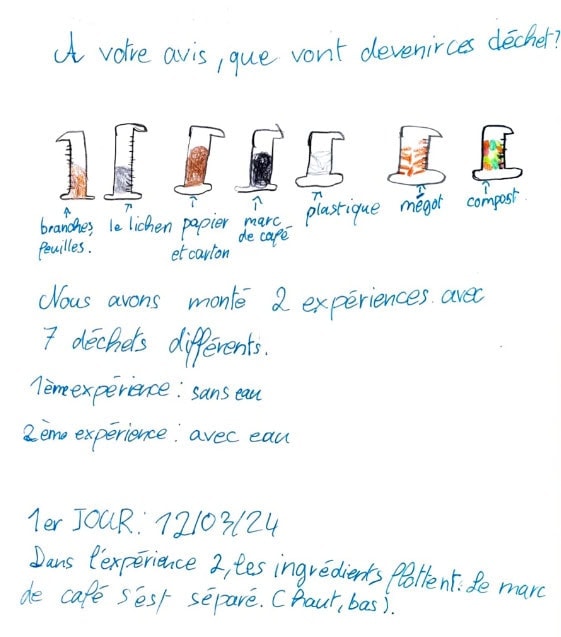 A votre avis, que vont devenir ces déchet?
branches, feuilles.
le lichen
papier et carton
marc de café
plastique
mégot
compost
Nous avons monté 2 expériences. avec
7 déchets différents.
1ème expérience : sans eau
2ème expérience : avec eau
1er JOUR : 12/03/24
Dans l'expérience 2, les ingrédients flottent. Le marc
de café s'est séparé. (haut, bas).